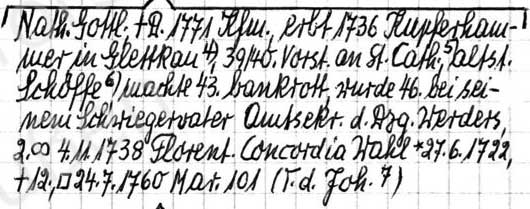 Nath. Gottl. +D. 1771 Kfm., erbt 1736 Kupferham-
mer in Glettkau 4), 39/40. Vorst. an St. Cath. 5), altst.
Schöffe 6) machte 43. bankrott, wurde 46. bei sei-
nem Schwiegervater Amtsekr. d. Dzg. Werders,
2.∞ 4.11.1738 Florent. Concordia Wahl *27.6.1722,
+12., □ 24.7.1760 Mar. 101 (T. d. Joh. 7)